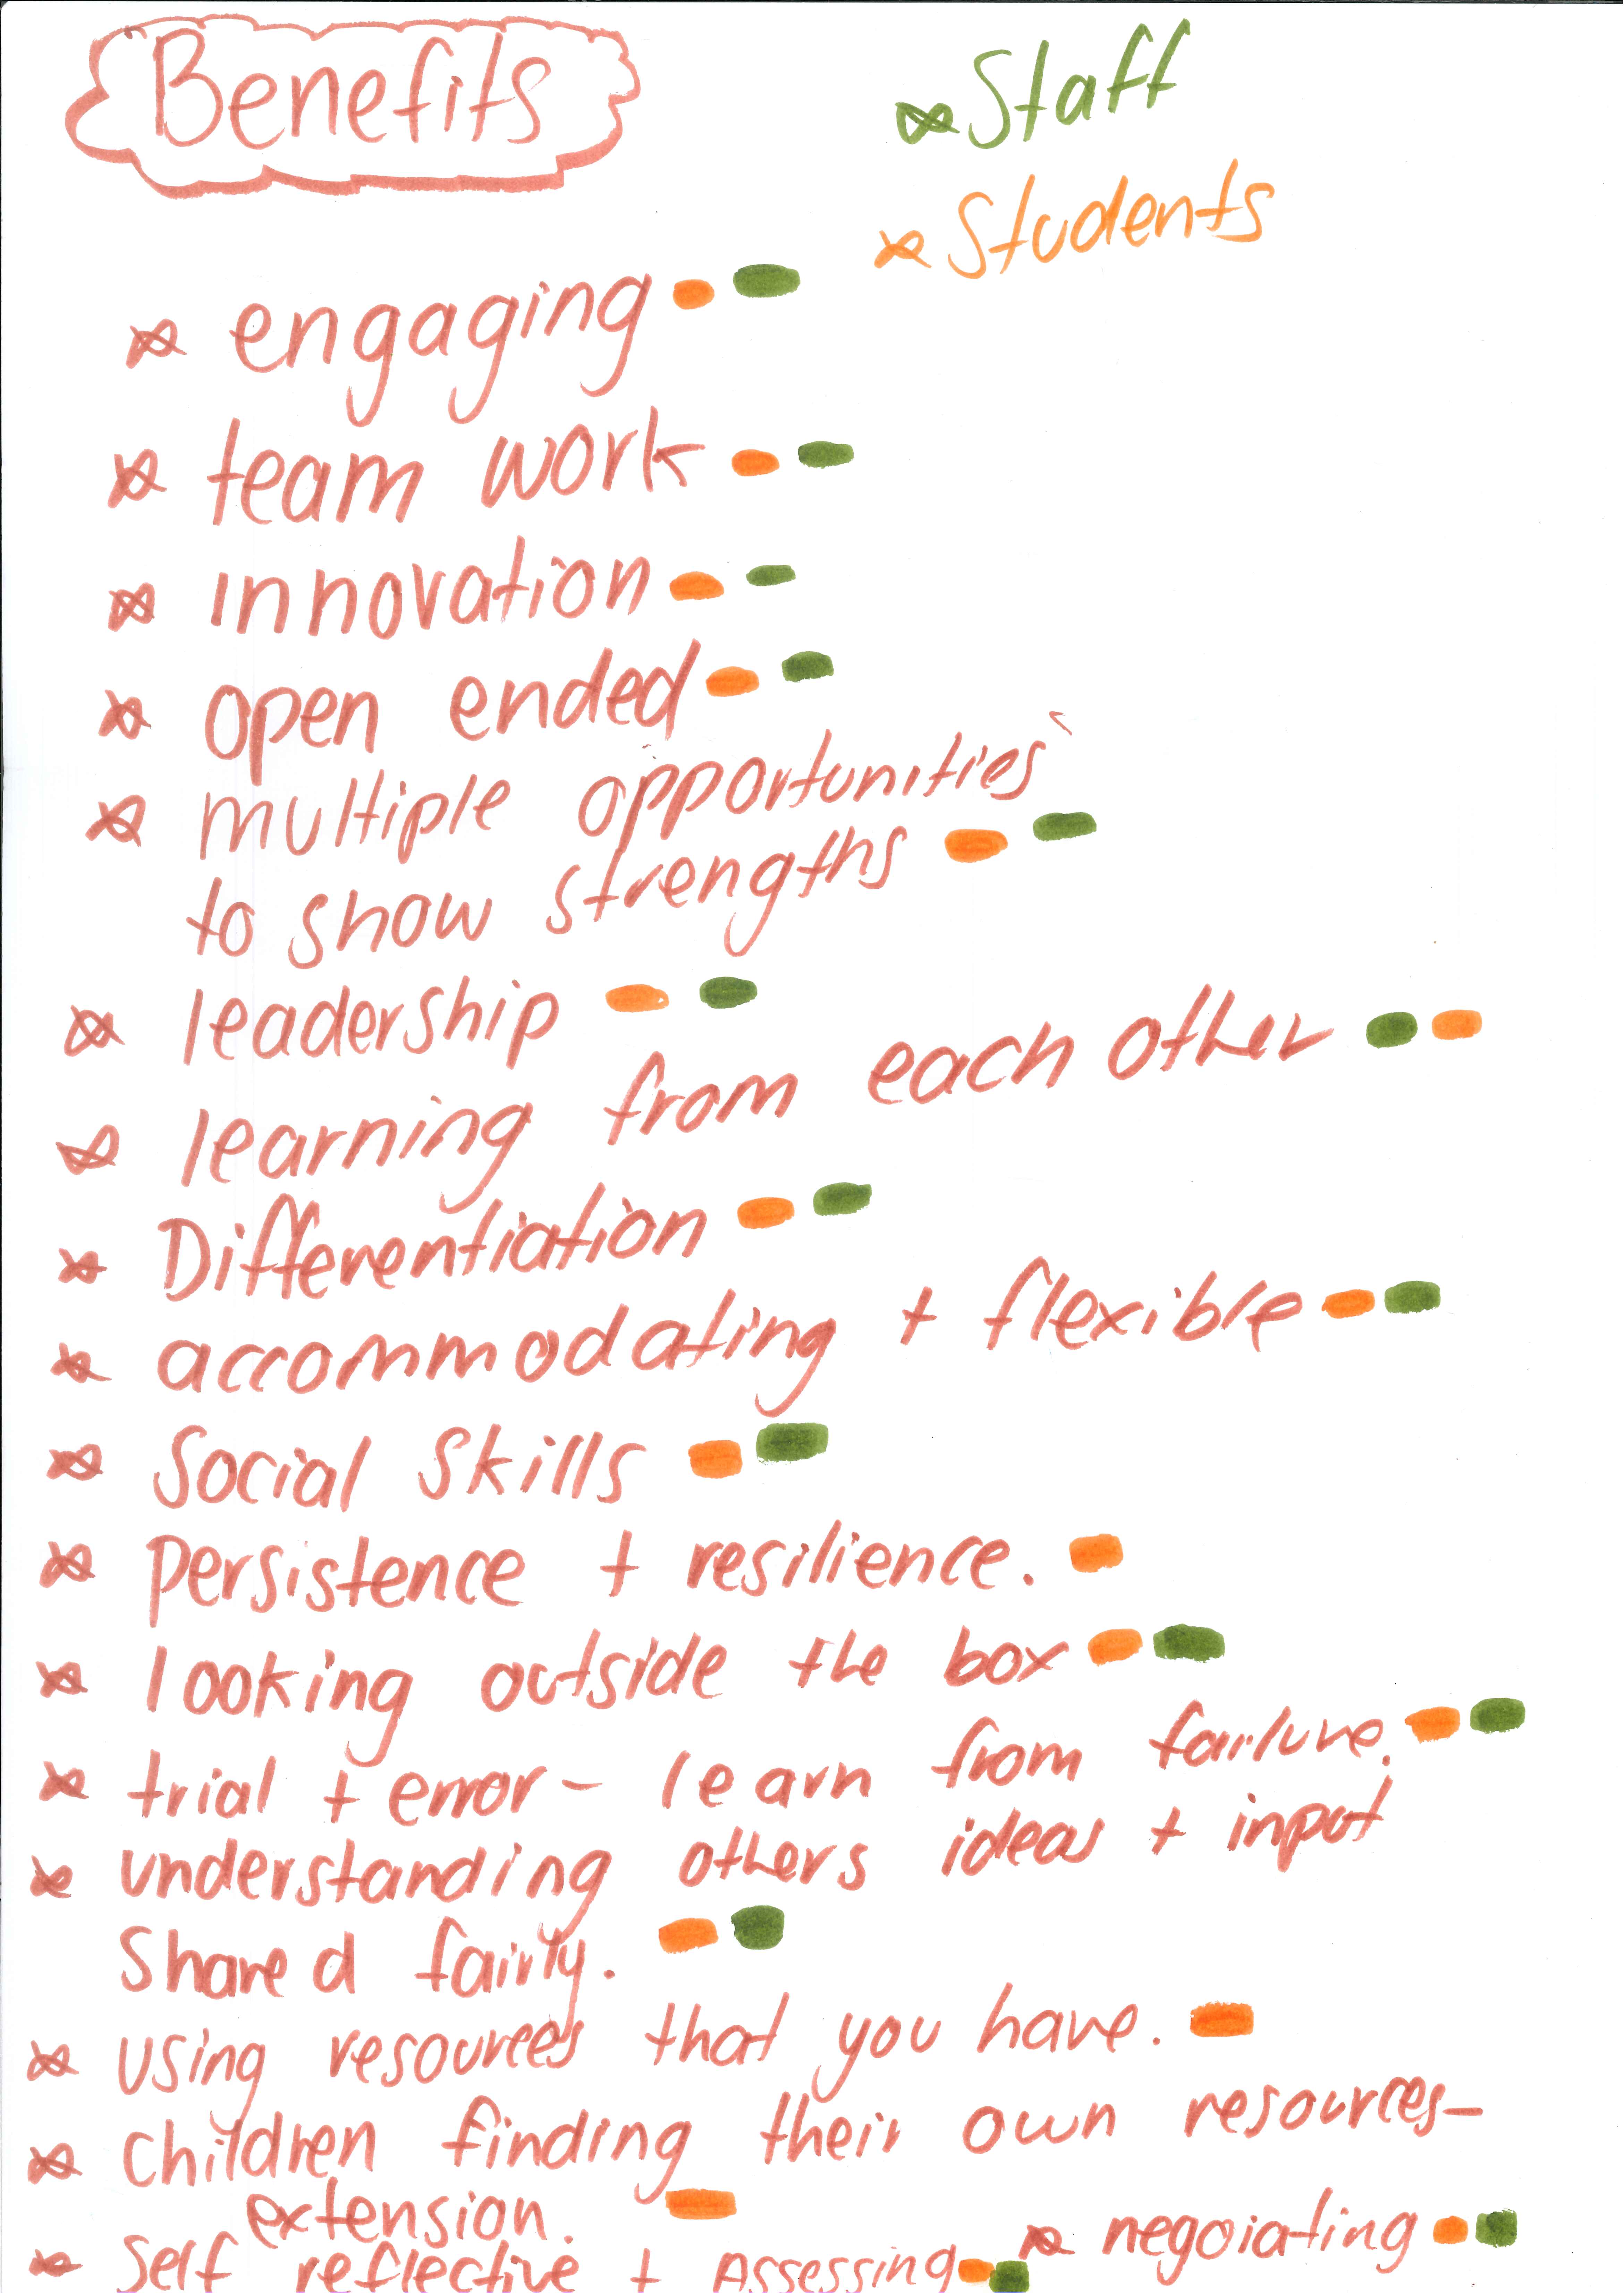 Benefits
Staff
Students
engaging
team work
innovation
open ended
multiple opportunities
to show strengths
leadership
learning from each other
Differentiation
accommodating + flexible
Social Skills
persistence + resilience.
looking outside the box
trial + error - learn from failure.
understanding others ideas + input
Shared fairly.
using resources that you have.
Children finding their own resources -
extension.
negoiating
Self reflective + Assessing